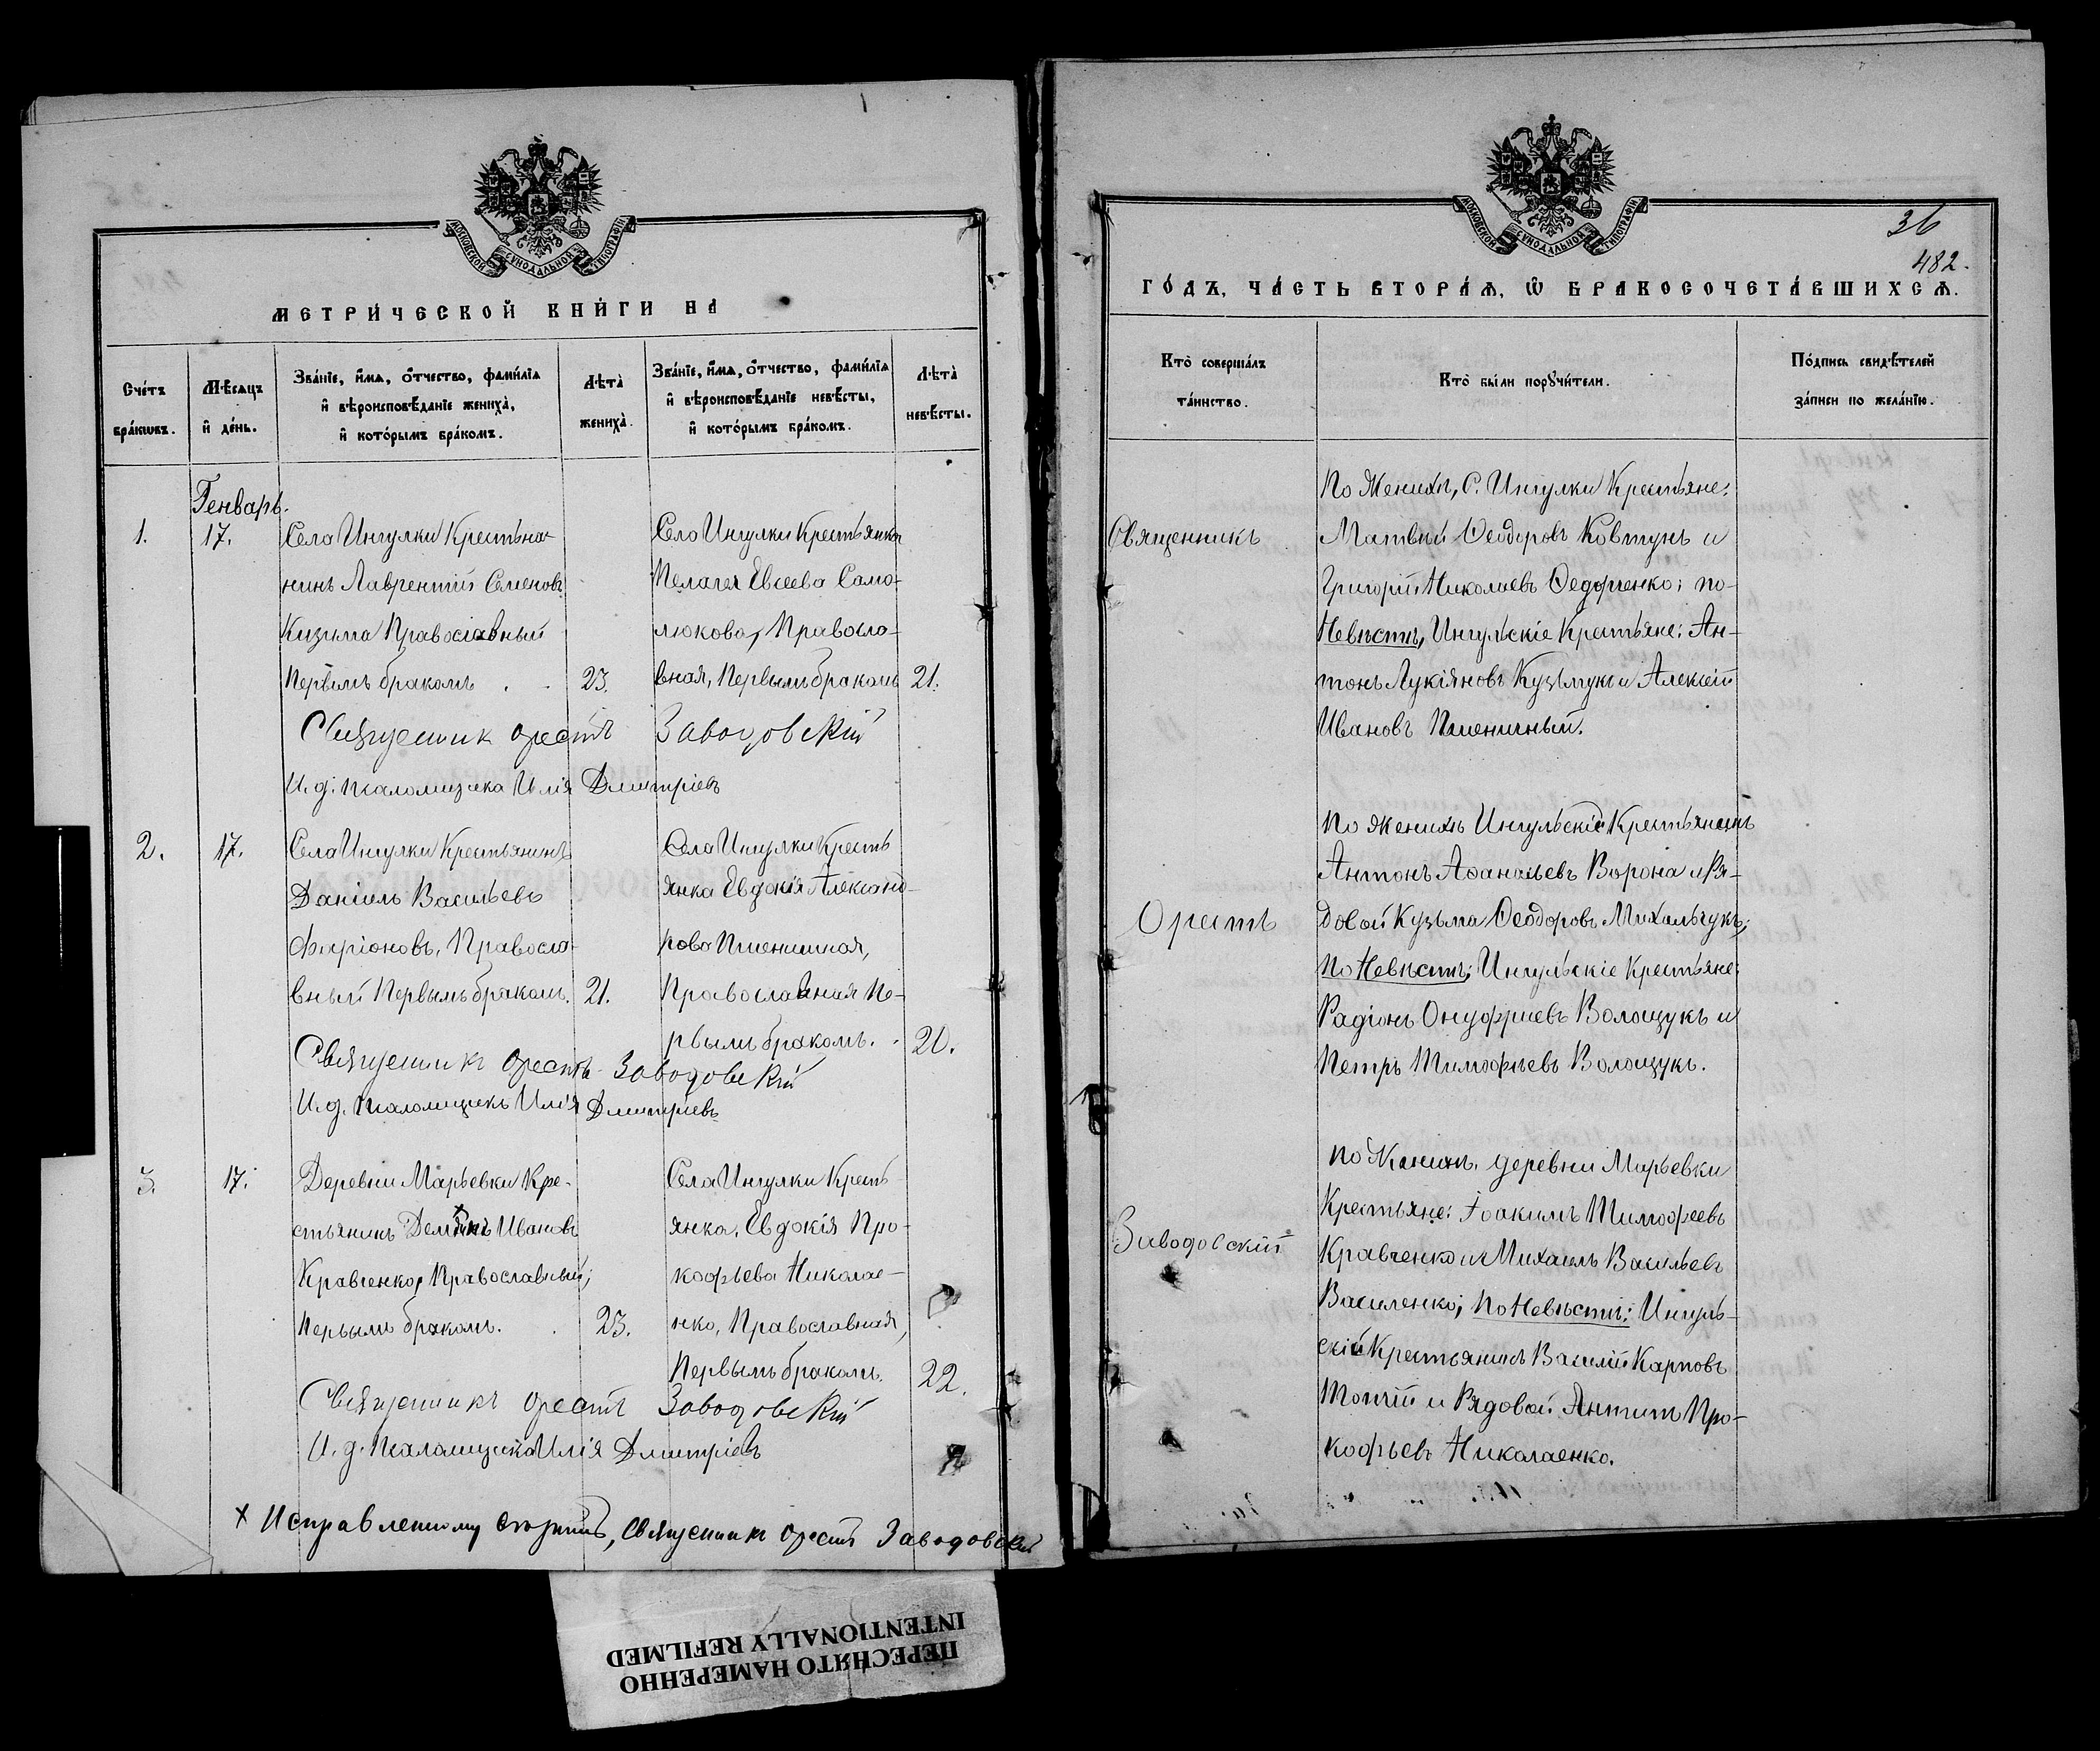 МОСКОВСКОЙ СѴНОДАЛЬНОЙ ТИПОГРАФІИ
МЕТРИ́ЧЕСКОЙ КНИ́ГИ НА
Сче́тъ бра́кѡвъ.
Мѣ́сяцъ и҆ де́нь.
Зва́нїе, и҆́мѧ, ѻ҆́тчество, фами́лїа
и҆ вѣроисповѣ́данїе жениха̀,
и҆ кото́рымъ бра́комъ.
Лѣта̀ жениха̀.
Зва́нїе, и҆́мѧ, ѻ҆́тчество, фами́лїа
и҆ вѣроисповѣ́данїе невѣ́сты,
и҆ кото́рымъ бра́комъ.
Лѣта̀ невѣ́сты.
Генварь.
1.
17.
Села Ингулки Крестья-
нинъ Лаврентій Семеновъ
Кизима Православный
Первымъ бракомъ
23.
Села Ингулки Крестьянка
Пелагея Евсеева Само-
люкова, Правосла-
вная, Первымъ бракомъ
21.
Священник Орестъ Заводовскій
И. д. псаломщика Илія Дмитріевъ
2.
17.
Села Ингулки Крестьянинъ
Даніилъ Васильевъ
Правосла-
вный Первымъ бракомъ.
21.
Села Ингулки Кресть
янка Евдокія Александ-
рова Пшеничная,
Православная Пе-
рвымъ бракомъ.
20.
Священникъ Орестъ Заводовскій
И. д. псаломщикъ Илія Дмитріевъ
3.
17.
Деревни Марьевки Кре-
стьянинъ Ивановъ
Кравченко, Православный,
Первымъ бракомъ.
23.
Села Ингулки Кресть
янка, Евдокія Про-
кофьева Николае-
нко, Православная,
Первымъ бракомъ.
22.
Священникъ Орестъ Заводовскій
И. д. псаломщика Илія Дмитріевъ
+ Исправленному вѣрить, Священникъ Орестъ Заводовскій
ПЕРЕСНЯТО НАМЕРЕННО
INTENTIONALLY REFILMED
МОСКОВСКОЙ СѴНОДАЛЬНОЙ ТИПОГРАФІИ
36
482.
ГО́ДЪ, ЧА́СТЬ ВТОРА́Ѧ, Ѽ БРАКОСОЧЕТА́ВШИХСѦ.
Кто̀ соверша́лъ
та́инство.
Кто̀ бы́ли порꙋчи́тели.
По́дпись свидѣ́телей
за́писи по жела́нїю.
Священникъ
Орестъ
Заводовскій
По Женихѣ, С. Ингулки Крестьяне:
Матвѣй Ѳеодоровъ Ковтунъ и
Григорій Николаевъ Ѳедорченко; по
Невѣстѣ, Ингульскіе Крестьяне: Ан-
тонъ Лукіяновъ Кузьмукъ и Алексій
Ивановъ Пшеничный.
По Женихѣ Ингульскій Крестьянинъ
Антонъ Аѳанасьевъ Ворона и Ря-
довой Кузьма Ѳеодоровъ Михальчукъ;
По Невѣстѣ; Ингульскіе Крестьяне:
Радіонъ Онуфріевъ Волощукъ и
Петръ Тимофѣевъ Волощукъ.
По Женихѣ. деревни Марьевки
Крестьяне: Іоакимъ Тимофеевъ
Кравченко и Михаилъ Васильевъ
Василенко; По Невѣстѣ: Ингуль-
скій Крестьянинъ Василій Карповъ
Топчій и Рядовой Антипъ Про-
кофьевъ Николаенко.